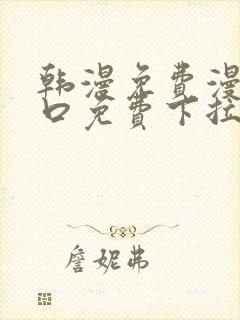 韩漫免费漫
口免费下拉
詹妮弗